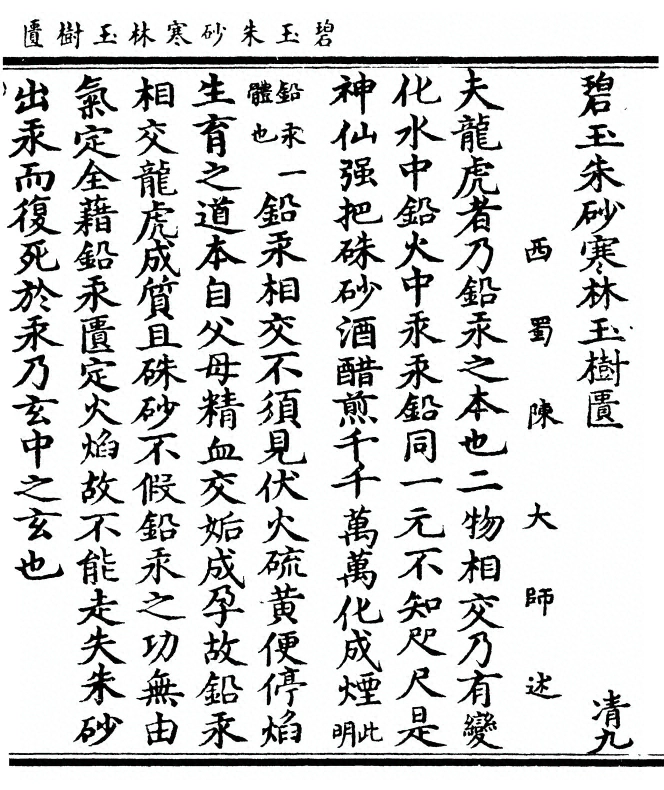 碧玉朱砂寒林玉樹匱
碧玉朱砂寒林玉樹匱 凊九
西蜀陳大師述
夫龍虎者乃鉛汞之本也二物相交乃有變
化水中鉛火中汞汞鉛同一元不知咫尺是
神仙强把硃砂酒醋煎千千萬萬化成煙此明
鉛汞體也一鉛汞相交不須見伏火硫黄便停焰
生育之道本自父母精血交姤成孕故鉛汞
相交龍虎成質且硃砂不假鉛汞之功無由
氣定全藉鉛汞匱定火焰故不能走失朱砂
出汞而復死於汞乃玄中之玄也